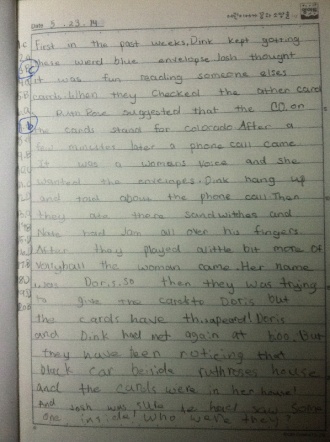 Date 3. 23. 14
First in the past weeks, Dink kept getting
these weird blue envelopes Josh thought
it was fun reading someone elses
cards. When they checked the other card
Ruth Rose suggested that the CO. on
the cards stand for colorado After a
few minutes later a phone call came
It was a womans voice and she
wanted the envelopes. Dink hang up
and told about the phone call Then
they ate there sandwithes and
Nate had Jam all over his fingers
After they played alittle bit more of
Vallyball the woman came. Her name
was Doris. so then they was trying
to give the cards to Doris but
the cards have Doris
and Dink had met again at But
they have been noticing that
black car beside ruthroses house
and the cards were in her house!
And Josh was like he have saw some
one inside! Who were they?